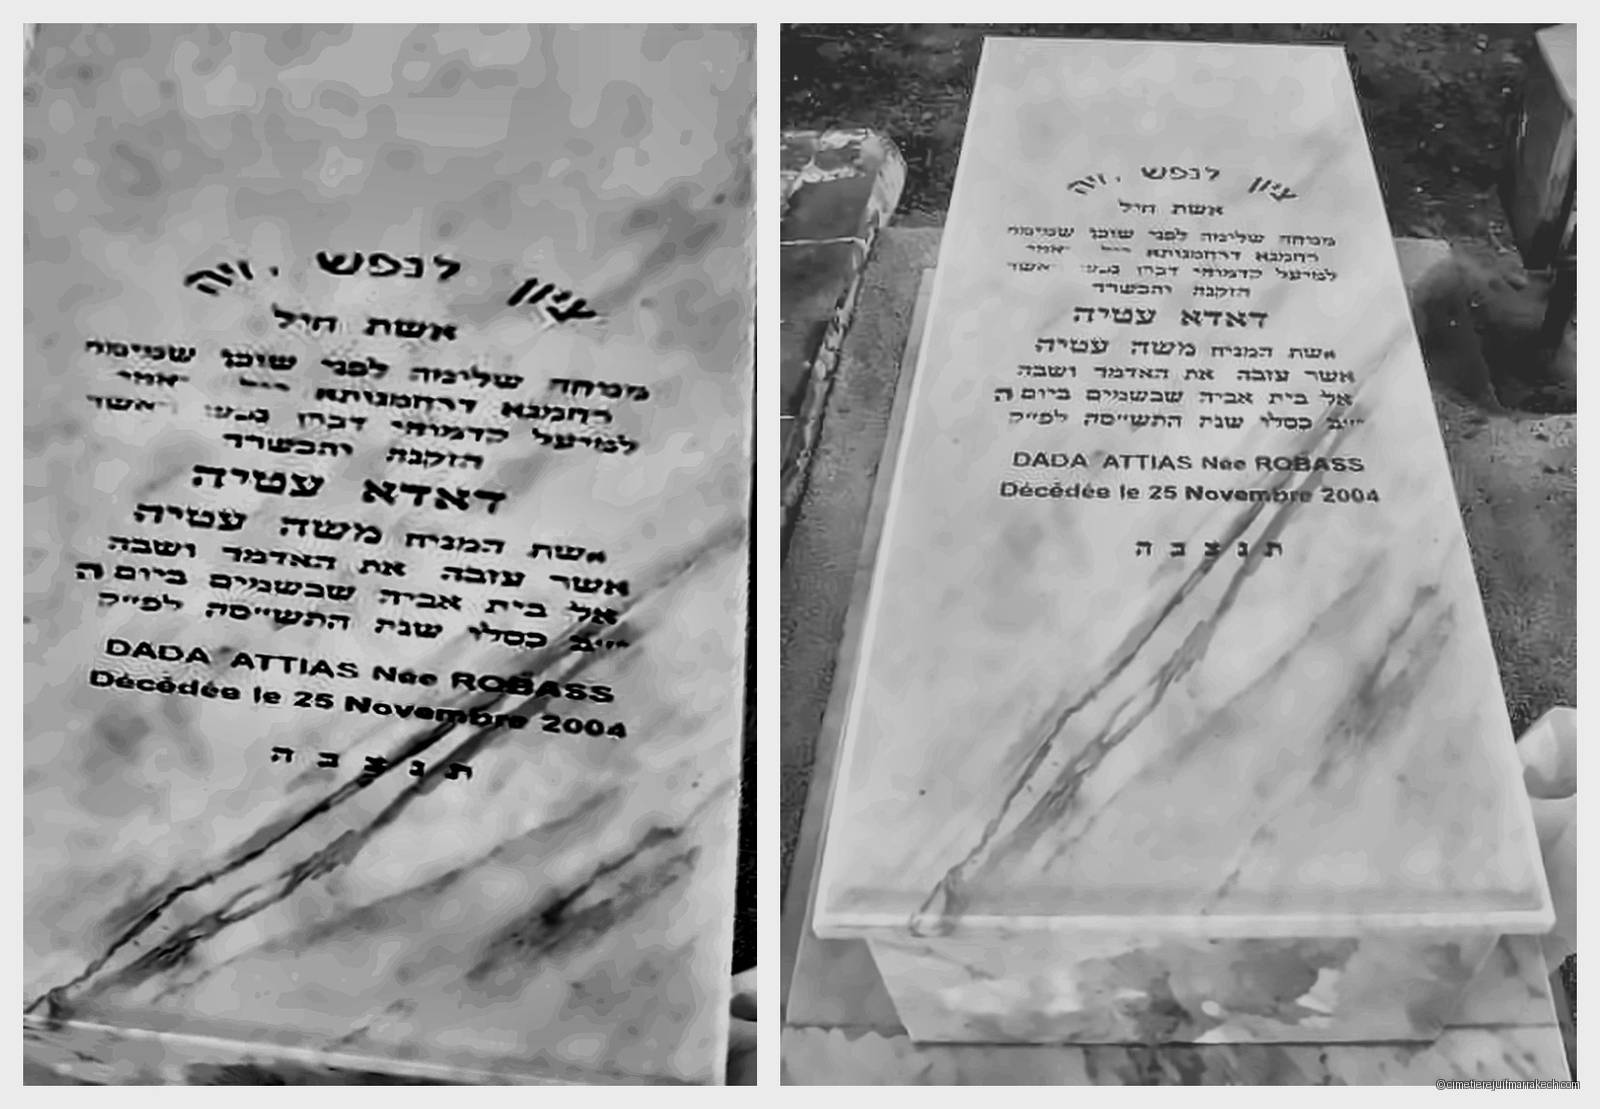 ציון לנפש חיה
אשת חיל
מנוחה שלימה לפני שוכן
רחמנא דרחמנותא
קדמוהי דברן
הזקנה
דאדא עטיה
אשת המנוח משה עטיה
אשר עזבה את האדמה ושבה
אל בית אביה שבשמים ביום ה
י״ב כסלו שנת התשס״ה לפ״ק
DADA ATTIAS Née ROBASS
Décédée le 25 Novembre 2004
ת נ צ ב ה
ציון לנפש חיה
אשת חיל
מנוחה שלימה לפני שוכן
רחמנא דרחמנותא
קדמוהי דברן
הזקנה
דאדא עטיה
אשת המנוח משה עטיה
אשר עזבה את האדמה ושבה
אל בית אביה שבשמים ביום ה
י״ב כסלו שנת התשס״ה לפ״ק
DADA ATTIAS Née ROBASS
Décédée le 25 Novembre 2004
ת נ צ ב ה
©cimetierejuifmarrakech.com